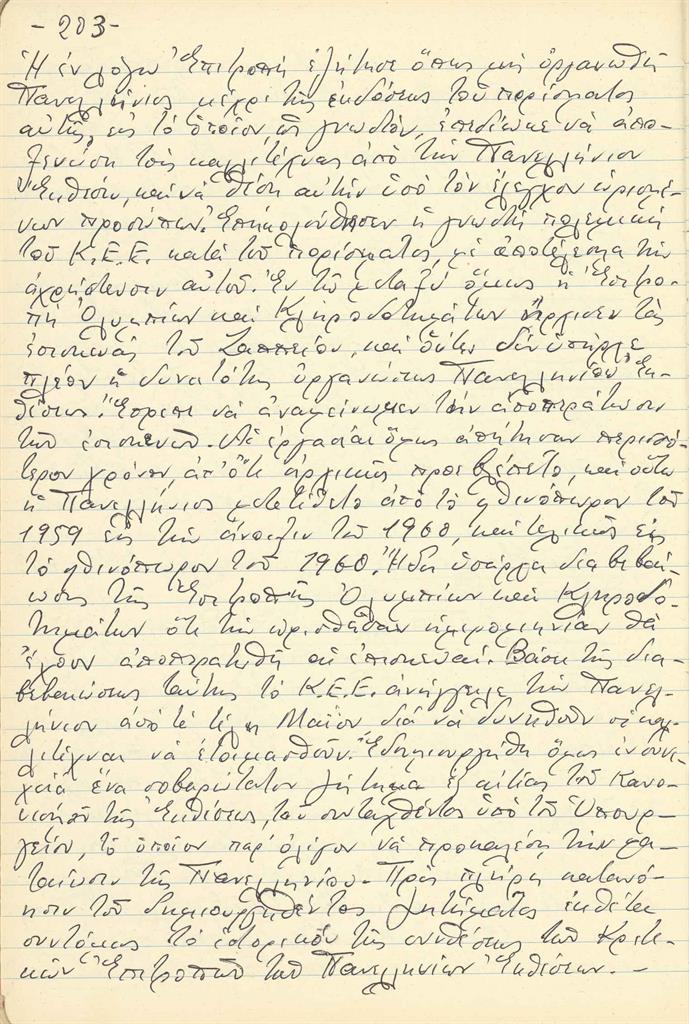 -203-
Ἡ ἐν λόγω Ἐπιτροπή ἐζήτησε ὅπως μή ὀργανωθῆ
Πανελλήνιος μέχρι τῆς ἐκδόσεως τοῦ πορίσματος
αὐτῆς, εἰς τό ὁποῖον, ὡς γνωστόν, ἐπεδίωκε νά ἀπο-
ξενώση τούς καλλιτέχνας ἀπό τήν Πανελλήνιον
Ἔκθεσιν, καί νά θέση αὐτήν ὑπό τόν ἔλεγχον ὡρισμέ-
νων προσώπων. Ἐπηκολούθησεν ἡ γνωστή πολεμική
τοῦ Κ.Ε.Ε. κατά τοῦ πορίσματος, μέ ἀποτέλεσμα τήν
ἀχρήστευσιν αὐτοῦ. Ἐν τῷ μεταξύ ὅμως ἡ Ἐπιτρο-
πή Ὀλυμπίων καί Κληροδοτημάτων ἤρχισεν τάς
ἐπισκευάς τοῦ Ζαππείου, καί οὕτω δέν ὑπῆρχε
πλέον ἡ δυνατότης ὀργανώσεως Πανελληνίου Ἐκ-
θέσεως. Ἔπρεπε νά ἀναμείνωμεν τήν ἀποπεράτωσιν
τῶν ἐπισκευῶν. Αἱ ἐργασίαι ὅμως ἀπήτησαν περισσό-
τερον χρόνον, ἀπ' ὅτι ἀρχικῶς προεβλέπετο, καί οὕτω
ἡ Πανελλήνιος μετετίθετο ἀπό τό φθινόπωρον τοῦ
1959 εἰς τήν ἄνοιξιν τοῦ 1960, καί τελικῶς εἰς
τό φθινόπωρον τοῦ 1960. Ἤδη ὑπάρχει διαβεβαί-
ωσις τῆς Ἐπιτροπῆς Ὀλυμπίων καί Κληροδο-
τημάτων ὅτι τήν ὁρισθεῖσαν ἡμερομηνίαν θά
ἔχουν ἀποπερατωθῆ αἱ ἐπισκευαί. Βάσει τῆς δια-
βεβαιώσεως ταύτης τό Κ.Ε.Ε. ἀνήγγειλε τήν Πανελ-
λήνιον ἀπό τά τέλη Μαΐου διά νά δυνηθοῦν οἱ καλ-
λιτέχναι νά ἑτοιμασθοῦν. Ἐδημιουργήθη ὅμως ἐν συνε-
χεία ἕνα σοβαρώτατον ζήτημα ἐξ αἰτίας τοῦ Κανο-
νισμοῦ τῆς Ἐκθέσεως, τοῦ συνταχθέντος ὑπό τοῦ Ὑπουρ-
γείου, τό ὁποῖον παρ' ὀλίγον νά προκαλέση τήν μα-
ταίωσιν τῆς Πανελληνίου. Πρός πλήρη κατανό-
ησιν τοῦ δημιουργηθέντος ζητήματος ἐκθέτω
συντόμως τό ἱστορικόν τῆς συνθέσεως τῶν Κριτι-
κῶν Ἐπιτροπῶν τῶν Πανελληνίων Ἐκθέσεων. -